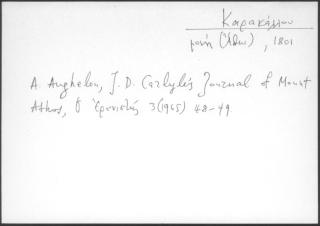 Καρακάλλου
μονή (Ἄθω), 1801
A. Anghelou, J. D. Carlyle's Journal of Mount
Athos, ὁ Ἐρανιστής 3 (1965) 48-49.